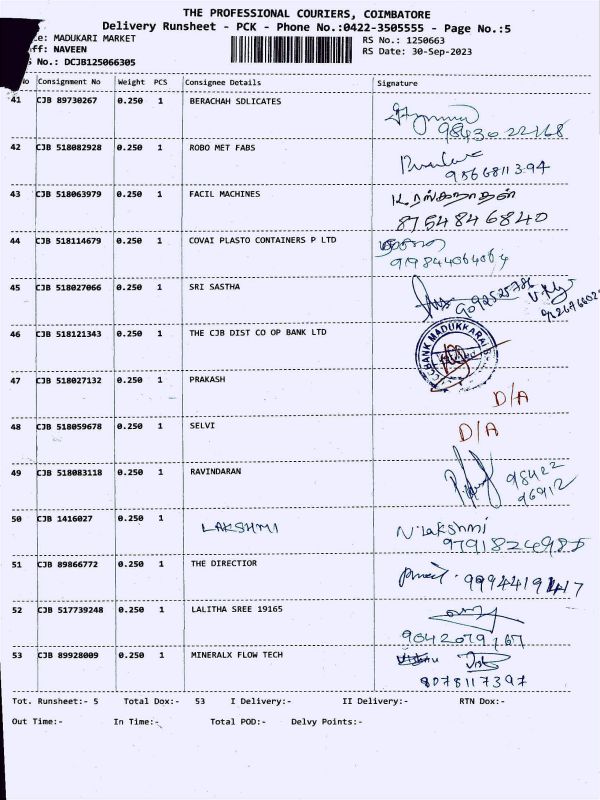 THE PROFESSIONAL COURIERS, COIMBATORE
Delivery Runsheet - PCK - Phone No.:0422-3505555 - Page No.:5
e: MADUKARI MARKET RS No.: 1250663
ff: NAVEEN RS Date: 30-Sep-2023
S No.: DCJB125066305
No Consignment No Weight PCS Consignee Details Signature
41 CJB 89730267 0.250 1 BERACHAH SDLICATES
9843022168
42 CJB 518082928 0.250 1 ROBO MET FABS
9566811394
43 CJB 518063979 0.250 1 FACIL MACHINES
8754846840
44 CJB 518114679 0.250 1 COVAI PLASTO CONTAINERS P LTD
919844064064
45 CJB 518027066 0.250 1 SRI SASTHA
46 CJB 518121343 0.250 1 THE CJB DIST CO OP BANK LTD
BANK MADUKKARAI
47 CJB 518027132 0.250 1 PRAKASH
D/A
48 CJB 518059678 0.250 1 SELVI D/A
49 CJB 518083118 0.250 1 RAVINDARAN
98422
96912
50 CJB 1416027 0.250 1 LAKSHMI N. Lakshmi
9791824985
51 CJB 89866772 0.250 1 THE DIRECTIOR 9994419147
52 CJB 517739248 0.250 1 LALITHA SREE 19165
9042079167
53 CJB 89928009 0.250 1 MINERALX FLOW TECH
8078117397
Tot. Runsheet:- 5 Total Dox:- 53 I Delivery:- II Delivery:- RTN Dox:-
Out Time:- In Time:- Total POD:- Delvy Points:-